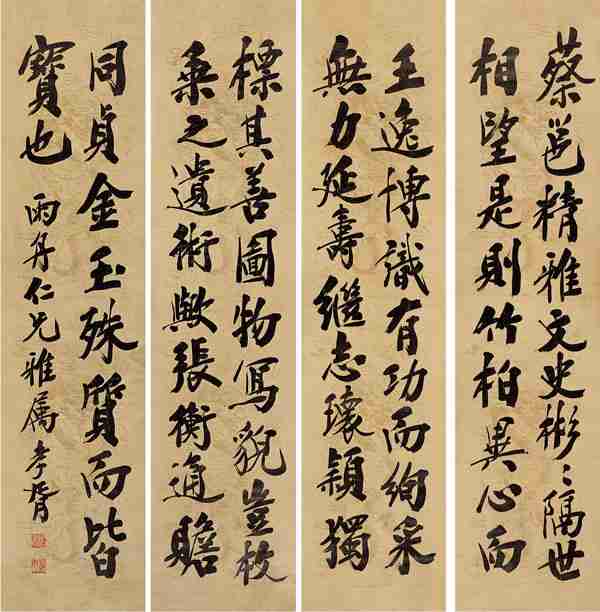 蔡邕精雅文史彬〻隔世
相望是則竹柏異心而
王逸博識有功而絢采
無力延壽繼志瓌穎獨
標其善圖物寫貌豈枚
乘之遺術歟張衡通贍
同貞金玉殊質而皆
寶也
雨丹仁兄雅屬孝胥